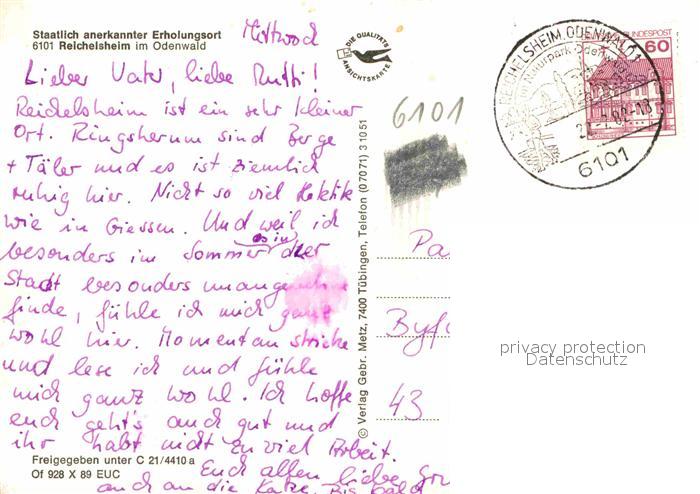 Staatlich anerkannter Erholungsort
6101 Reichelsheim im Odenwald
Mittwoch
Lieber Vater, liebe Mutti!
Reichelsheim ist ein sehr kleiner
Ort. Ringsherum sind Berge
+ Täler und es ist ziemlich
ruhig hier. Nicht so viel Hektik
wie in Giessen. Und weil ich
es in
besonders im Sommer der
Stadt besonders unangenehm
finde, fühle ich mich ganz
wohl hier. Momentan stricke
und lese ich und fühle
mich ganz wohl. Ich hoffe
euch geht's auch gut und
ihr habt nicht zu viel Arbeit.
Euch allen liebe
auch an die Katze. Bis bald
Freigegeben unter C 21/4410 a
Of 928 X 89 EUC
DIE QUALITÄTS
ANSICHTSKARTE
© Verlag Gebr. Metz, 7400 Tübingen, Telefon (0 70 71) 3 10 51
6101
Pa
43
REICHELSHEIM, ODENWALD 1
im Naturpark Odenwald
6101
BUNDESPOST
60
privacy protection
Datenschutz